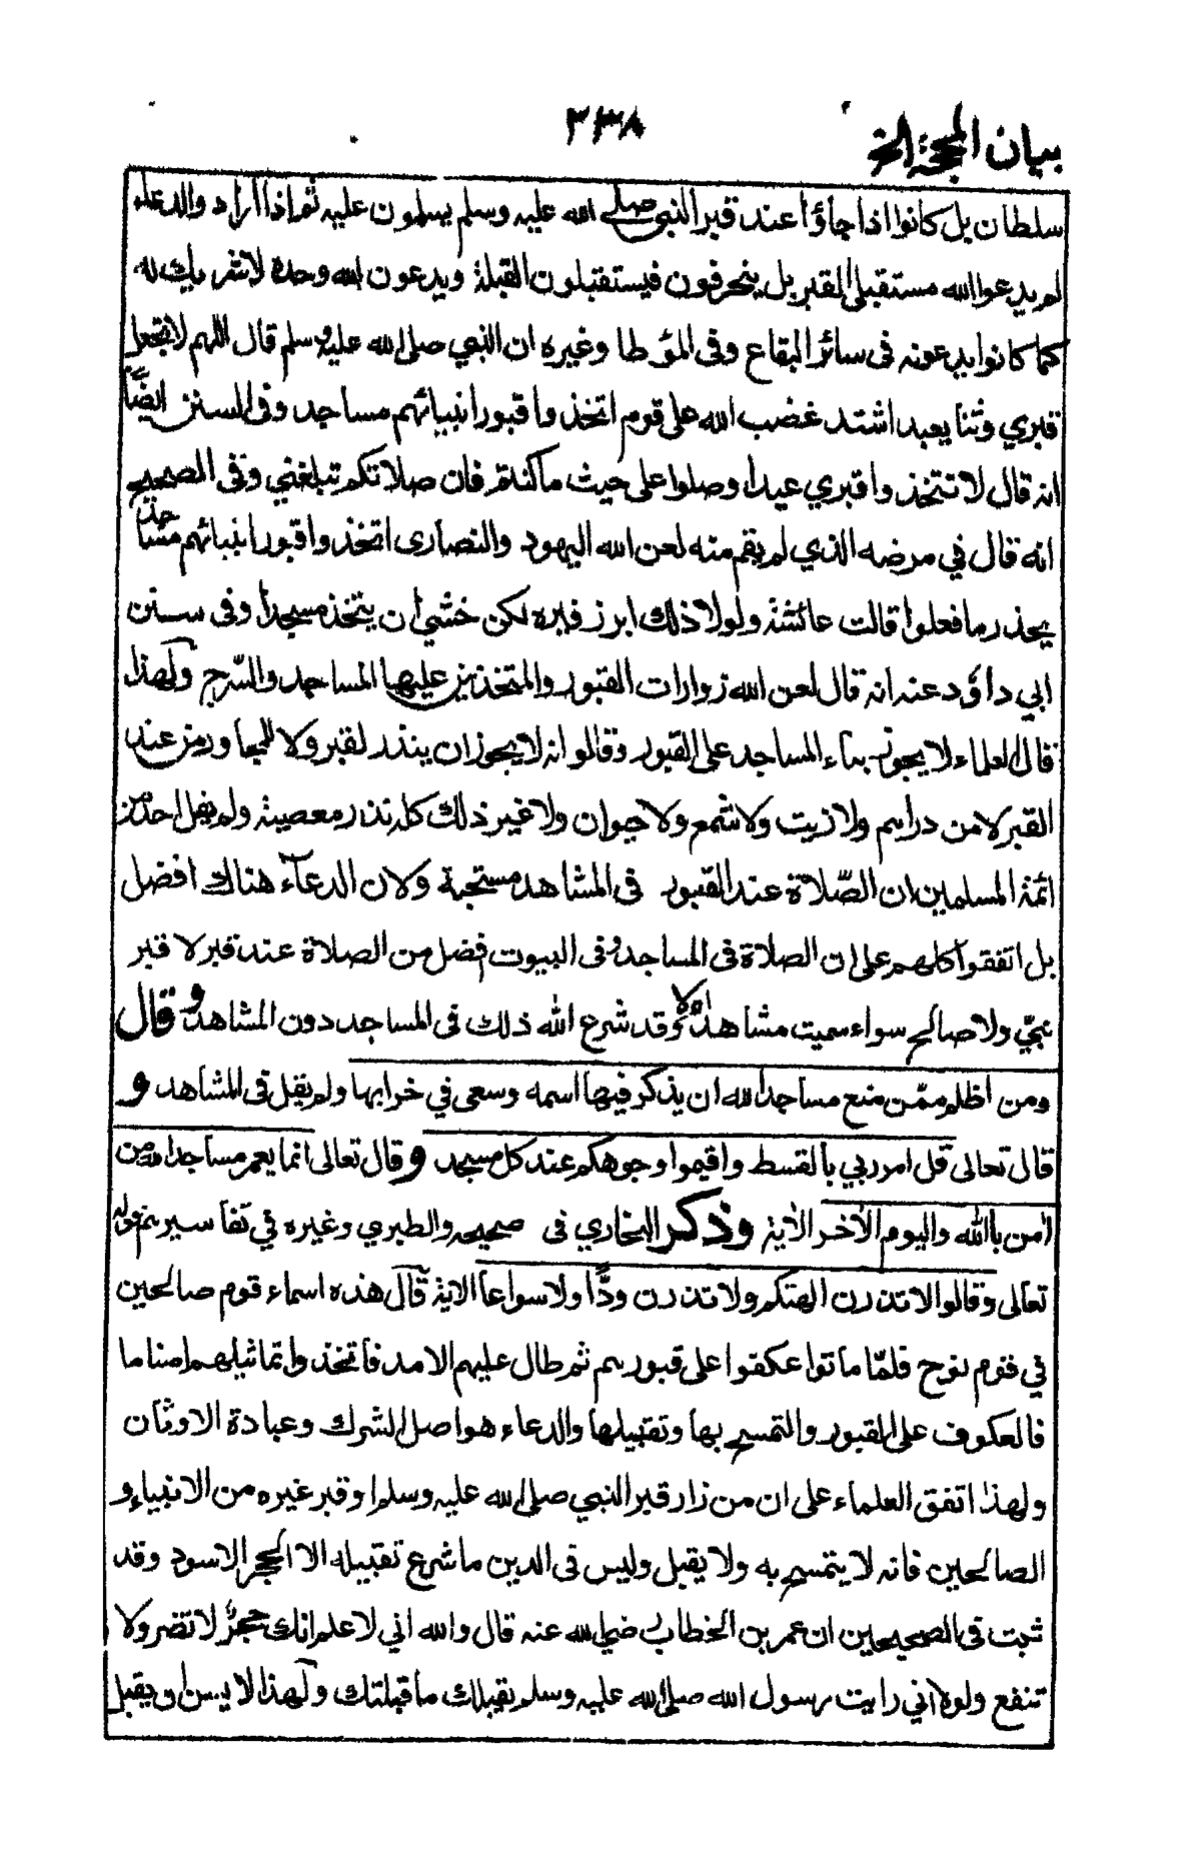 بيان المحجة الخ
٣٣٨
سلطان بل كانوا اذا جاؤا عند قبر النبي صلى الله عليه وسلم يسلمون عليه ثم اذا اراد والدعاء
لم يدعوا الله مستقبلى القبر بل ينحرفون فيستقبلون القبلة ويدعون الله وحده لا شريك له
كما كانوا يدعونه فى سائر البقاع وفى المؤطا وغيره ان النبي صلى الله عليه وسلم قال اللهم لا تجعل
قبري وثنا يعبد اشتد غضب الله على قوم اتخذوا قبور انبيائهم مساجد وفى السنن ايضًا
انه قال لا تتخذوا قبري عيدا وصلوا على حيث ما كنتم فان صلاتكم تبلغني وفى الصحيح
انه قال في مرضه الذي لم يقم منه لعن الله اليهود والنصارى اتخذوا قبور انبيائهم مساجد
يحذر ما فعلوا قالت عائشة ولولا ذلك ابرز قبره لكن خشي ان يتخذ مسجدا وفى سنن
ابي داؤد عنه انه قال لعن الله زوارات القبور والمتخذين عليها المساجد والسّرج ولهذا
قال العلماء لا يجوز بناء المساجد على القبور وقالوا انه لا يجوز ان ينذر لقبر ولا للمجاورين عند
القبر لا من دراهم ولا زيت ولا شمع ولا حيوان ولا غير ذلك كله نذر معصية ولم يقل احد من
ائمة المسلمين ان الصّلاة عند القبور فى المشاهد مستحبة ولا ان الدعآء هناك افضل
بل اتفقوا كلهم على ان الصلاة فى المساجد وفى البيوت افضل من الصلاة عند قبر لا قبر
نبيّ ولا صالح سواء سميت مشاهد اولا وقد شرع الله ذلك فى المساجد دون المشاهد وقال
ومن اظلم ممّن منع مساجد الله ان يذكر فيها اسمه وسعى في خرابها ولم يقل فى المشاهد و
قال تعالى قل امر ربي بالقسط واقيموا وجوهكم عند كل مسجد وقال تعالى انما يعمر مساجد الله من
امن بالله واليوم الاخر الاية وذكر البخاري فى صحيحه والطبري وغيره في تفاسيرهم قوله
تعالى وقالوا لا تذرن الهتكم ولا تذرن ودًّا ولا سواعا الاية قال هذه اسماء قوم صالحين
في قوم نوح فلمّا ماتوا عكفوا على قبورهم ثم طال عليهم الامد فاتخذوا تماثيلهم اصناما
فالعكوف على القبور والتمسح بها وتقبيلها والدعاء هو اصل الشرك وعبادة الاوثان
ولهذا اتفق العلماء على ان من زار قبر النبي صلى الله عليه وسلم او قبر غيره من الانبياء و
الصالحين فانه لا يتمسح به ولا يقبل وليس فى الدين ما شرع تقبيله الا الحجر الاسود وقد
ثبت فى الصحيحين ان عمر بن الخطاب رضي الله عنه قال والله اني لاعلم انك حجرٌ لا تضر ولا
تنفع ولولا اني رايت رسول الله صلى الله عليه وسلم يقبلك ما قبلتك ولهذا لا يسن او يقبل